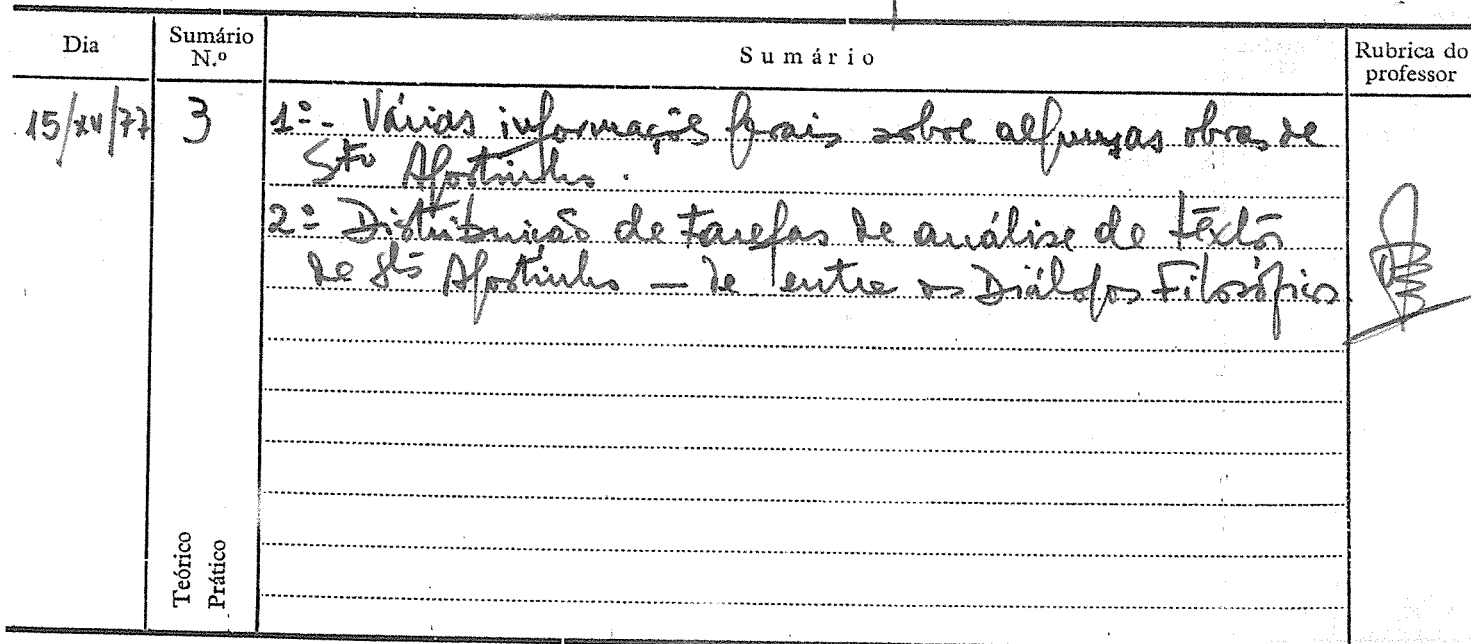 Dia
Sumário N.º
Sumário
Rubrica do professor
15/XII/77
3
1º - Várias informações gerais sobre algumas obras de
Sto Agostinho.
2º Distribuição de tarefas de análise de textos
de Sto Agostinho — de entre os Diálogos Filosóficos
Teórico
Prático